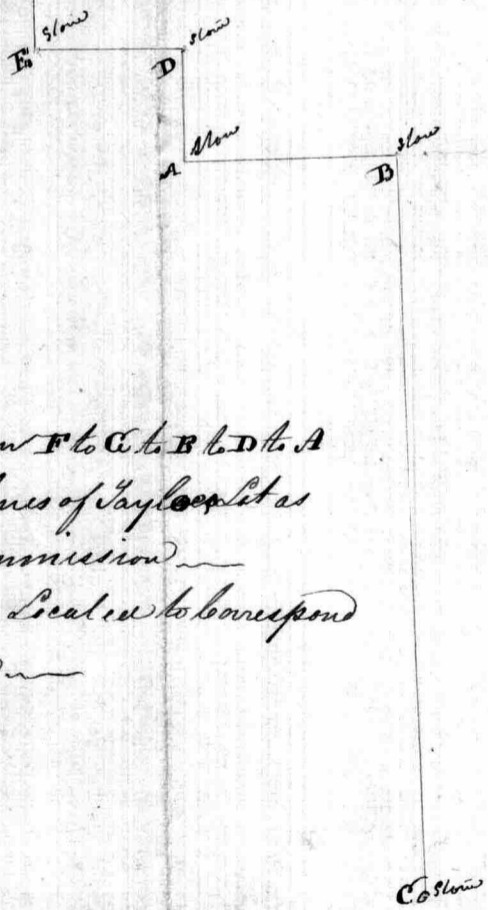 Stone
E
Stone
D
Stone
A
Stone
B
F to G to E to D to A
of Taylors Lot as
Located to Correspond
C Stone